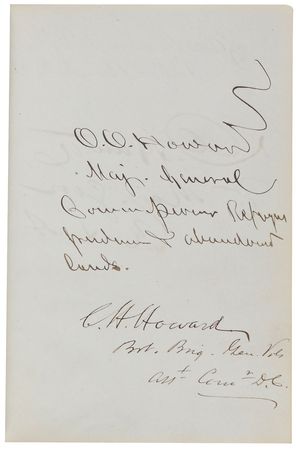 O. O. Howard
Maj. General
Commissioner Refugees
freedmen & abandoned
lands.
C. H. Howard
Bvt. Brig. Gen. Vols
asst Comr D.C.